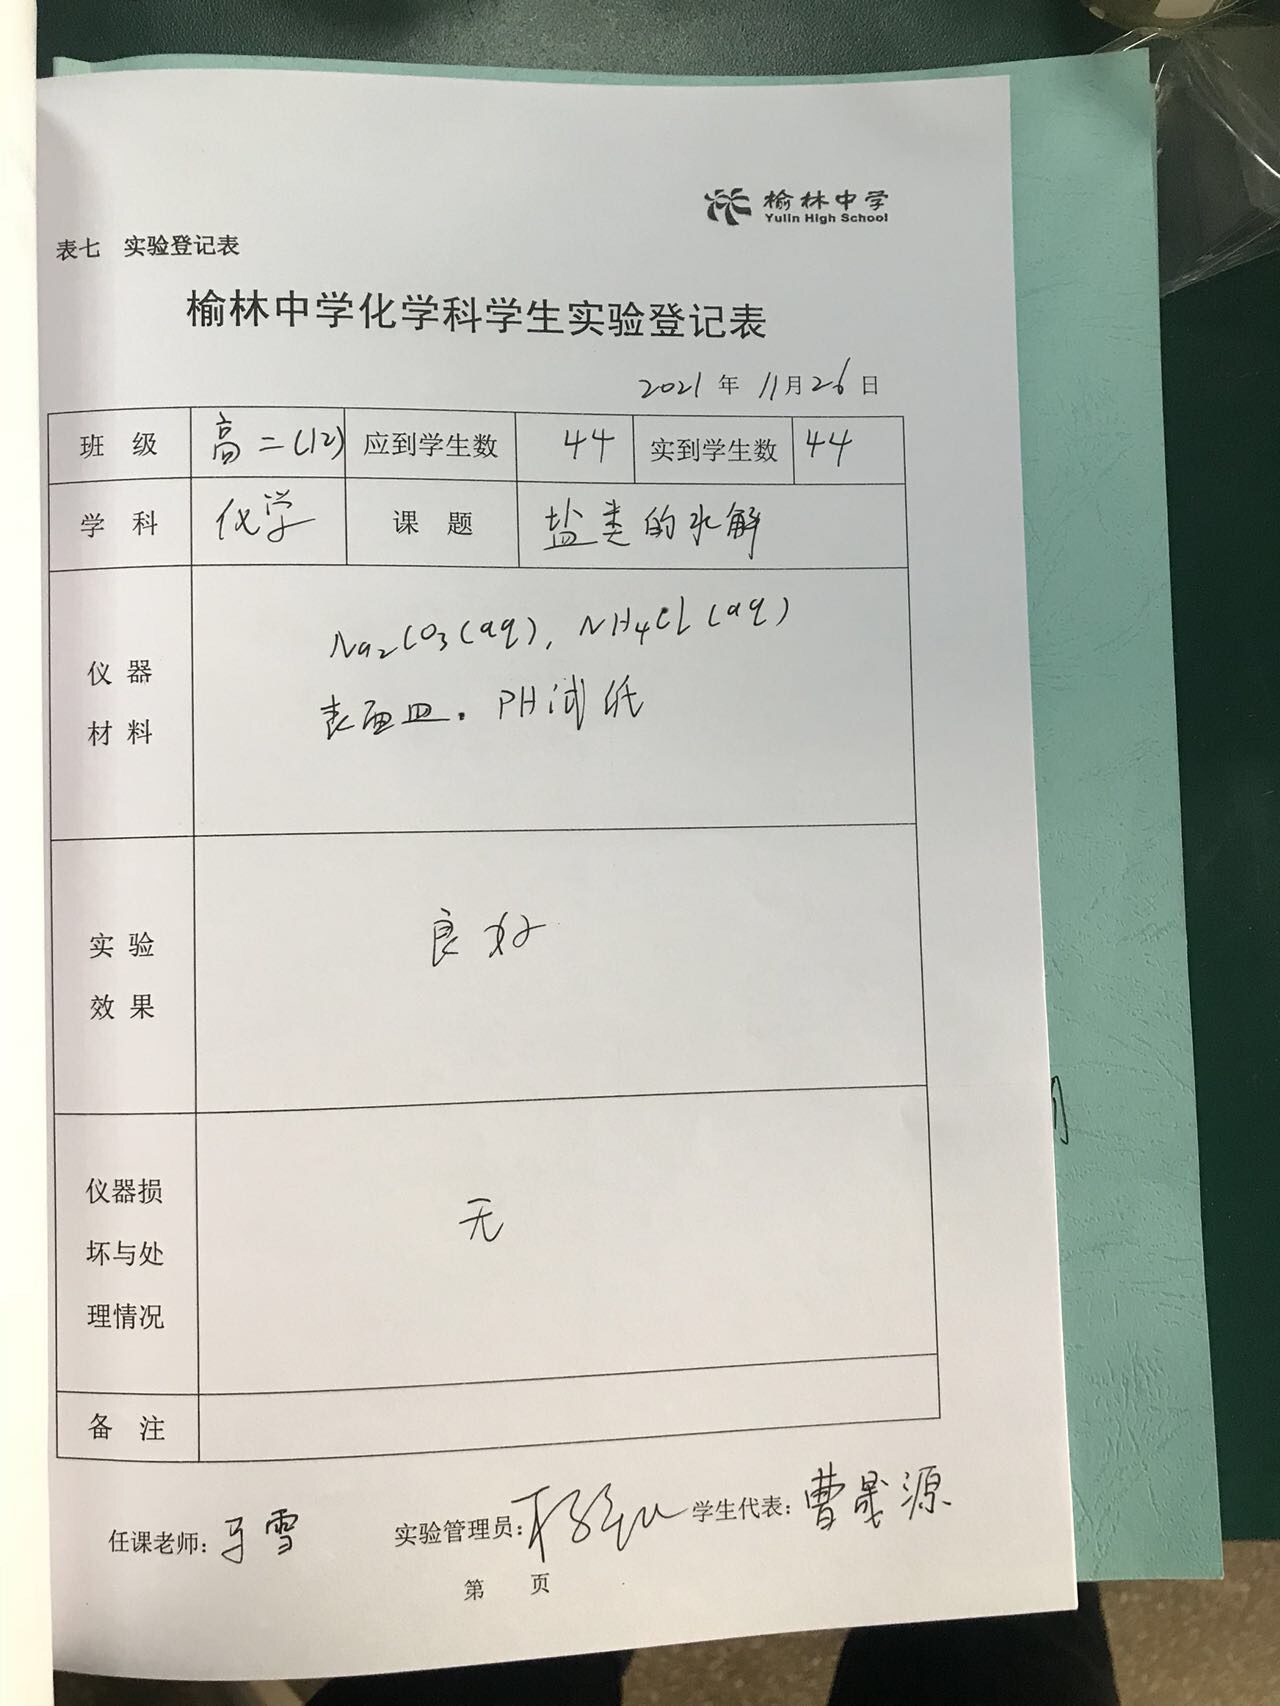 榆林中学
Yulin High School
表七 实验登记表
榆林中学化学科学生实验登记表
2021 年 11月26日
班 级 高二(12) 应到学生数 44 实到学生数 44
学 科 化学 课 题 盐类的水解
仪 器
材 料
Na₂CO₃(aq), NH₄Cl(aq)
表面皿. PH试纸
实 验
效 果
良好
仪器损
坏与处
理情况
无
备 注
任课老师: 马雪 实验管理员: 学生代表: 曹晟源
第 页